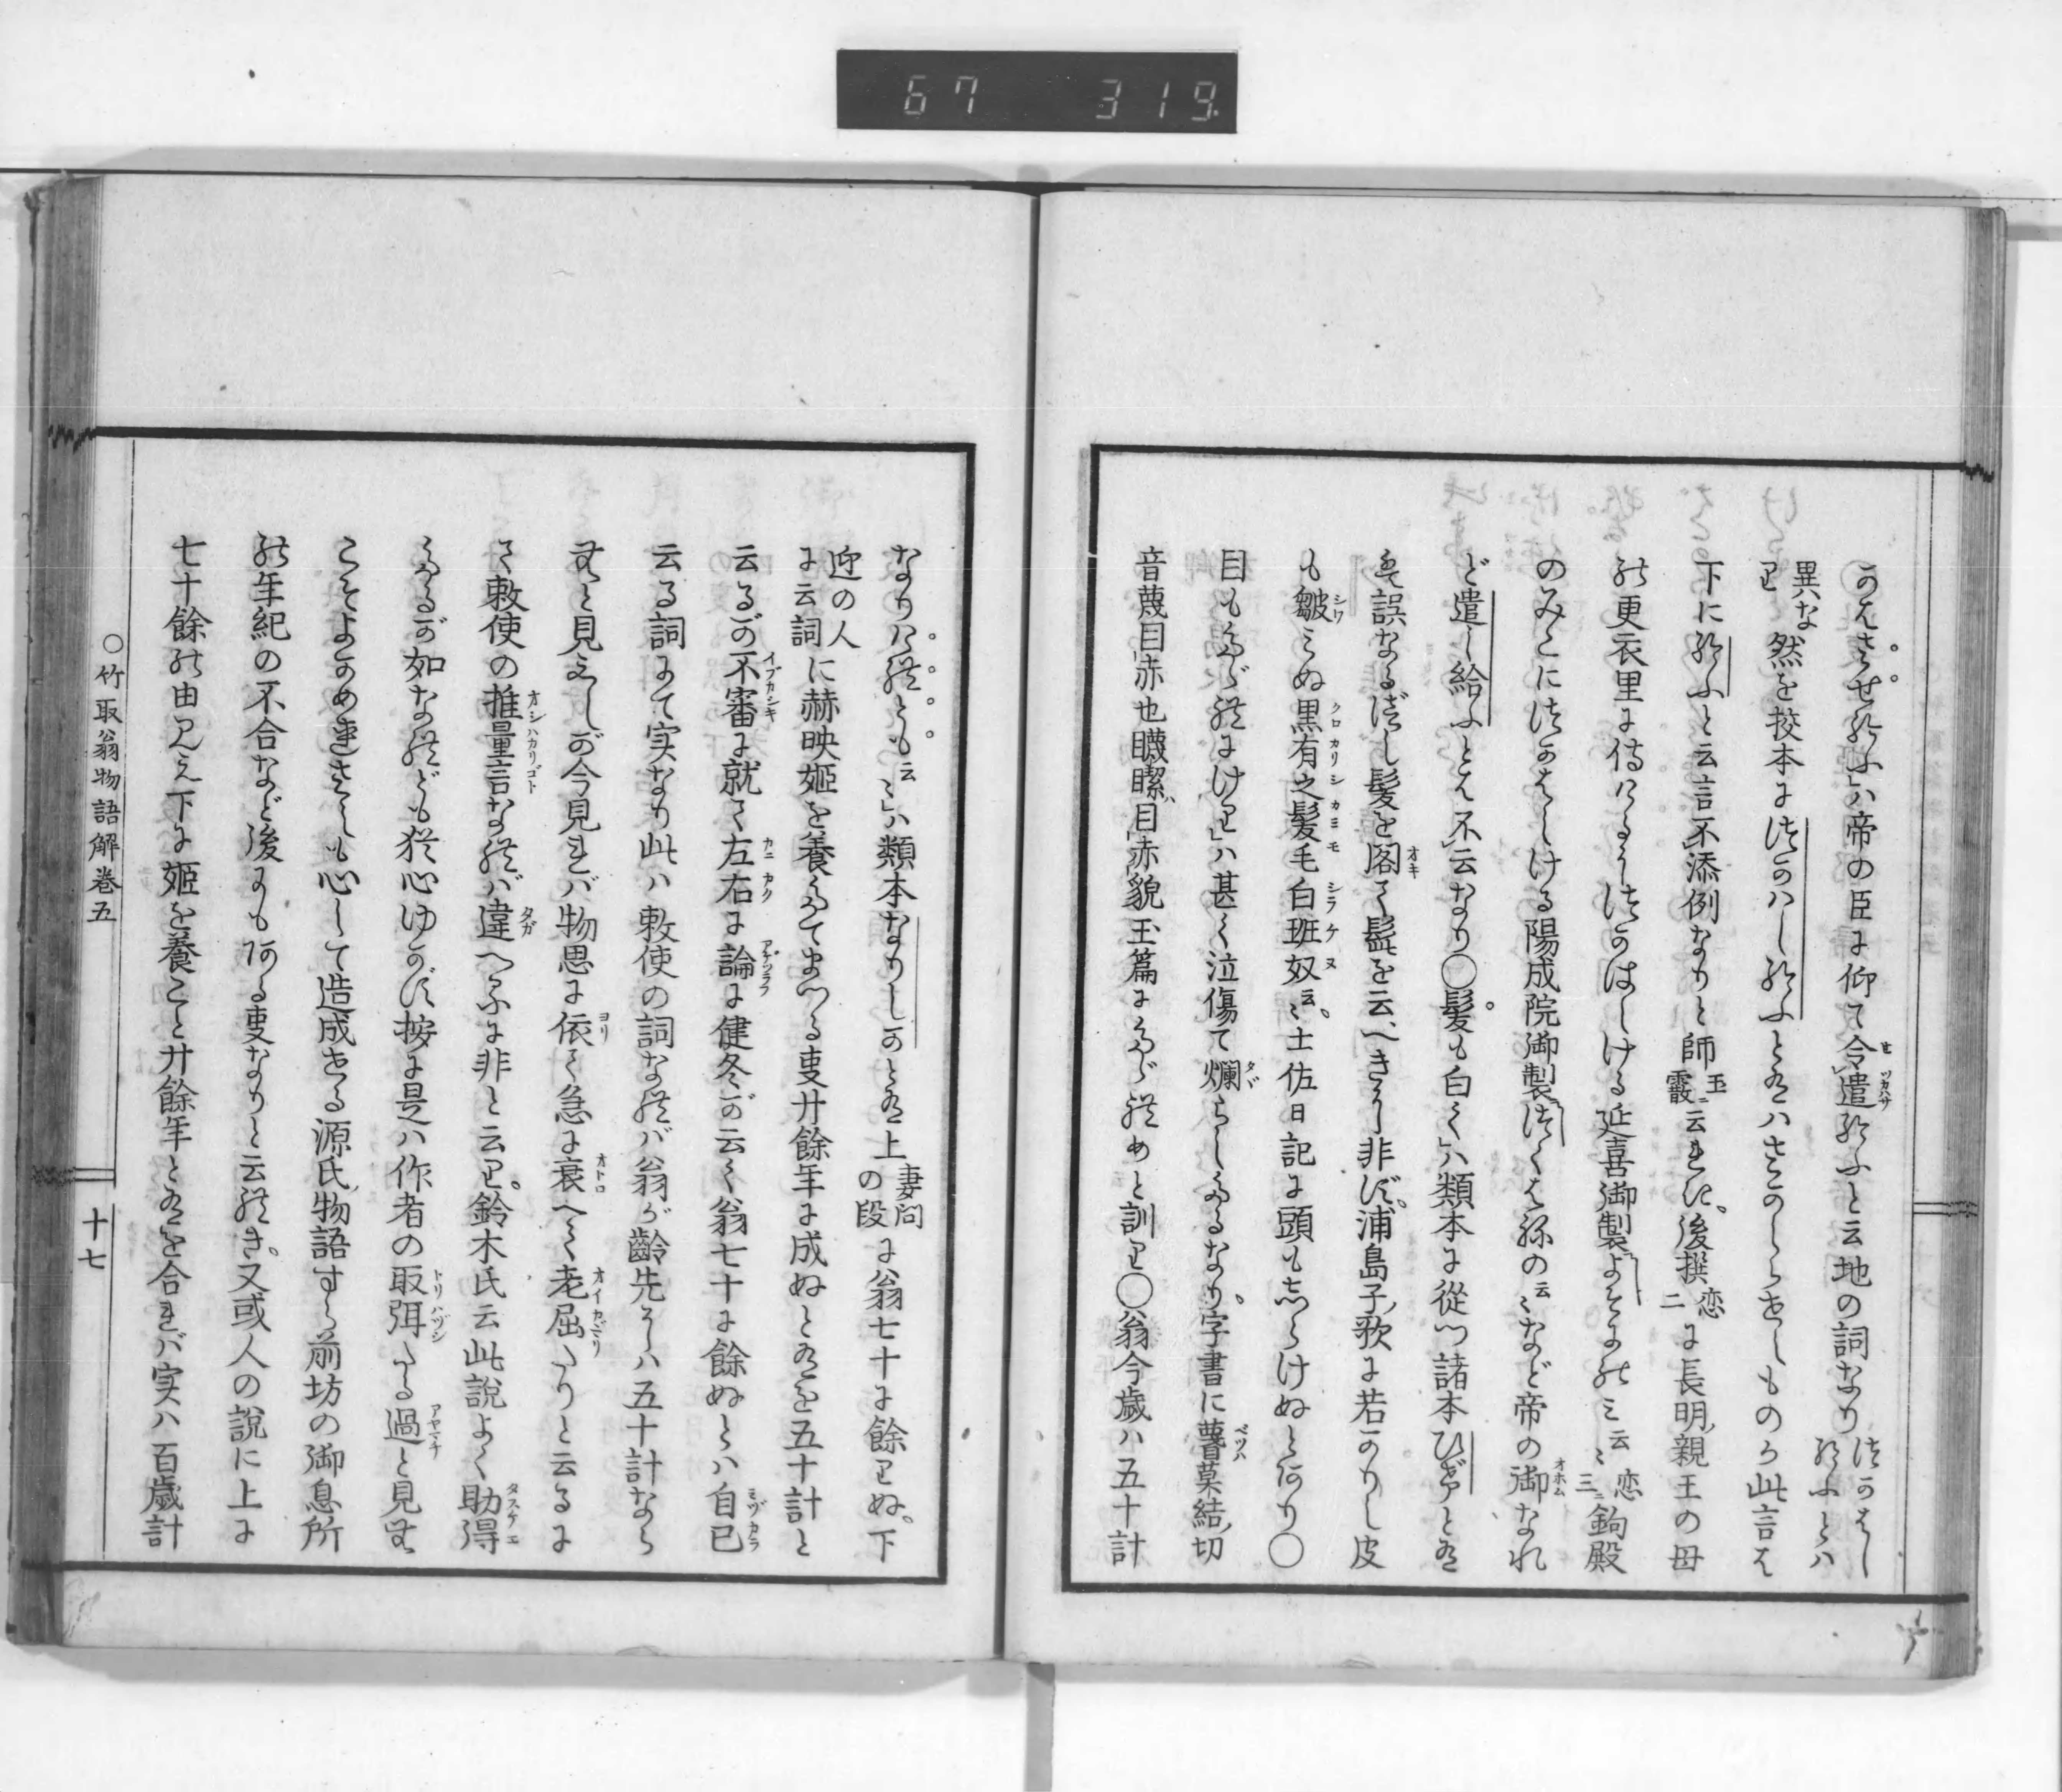 67 319
のはさせ給ふ」ハ帝の臣に仰て令遣給ふと云地の詞なり つかはし給ふとハ
異なり 然を挍本につかハし給ふとあるハさかしらせしものか此言は
下に給ふと云言不添例なりと師 玉霰ニ 云れき、後撰 恋二 に長明親王の母
の更衣里に侍けるにつかはしける延喜御製よそにのミ云〻 恋三ニ 鉤殿
のみこにつかはしける陽成院御製つくはねの云〻など帝の御なれ
ど遣し給ふとは不云なり〇髪も白く」ハ類本に從つ諸本ひげとある
ハ誤なるべし髪を閣て髭を云べきに非ず、浦島子歌に若かりし皮
も皺ミぬ黒有之髪毛白班奴云〻、土佐日記に頭もしらけぬとあり〇
目もたゞれにけり」ハ甚く泣傷て爛らしたるなり、字書に瞢莫結切
音蔑目赤也䁾䁼目赤貌玉篇にたゞれめと訓り〇翁今歳ハ五十計
なりけれども云〻」ハ類本なりしかとある上 妻問の段 に翁七十に餘りぬ、下
迎の人に云詞 に赫映姫を養たてまつる事廿餘年に成ぬとあるを五十計と
云るが不審に就て左右に論に健冬が云く翁七十に餘ぬとハ自己
云る詞にて実なり此ハ敕使の詞なれバ翁が齡先にハ五十計なら
むと見えしが今見れバ物思に依て急に衰へて老屈たりと云るに
て敕使の推量言なれバ違へるに非と云り。鈴木氏云此説よく助得
たるが如なれども猶心ゆかず按に是ハ作者の取弭たる過と見む
こそよかめれさしも心して造成せる源氏物語すら前坊の御息所
の年紀の不合など後にもある事なりと云れき、又或人の説に上に
七十餘の由見え下に姫を養こと廿餘年とあるを合れバ実ハ百歳計
〇竹取翁物語解巻五
十七